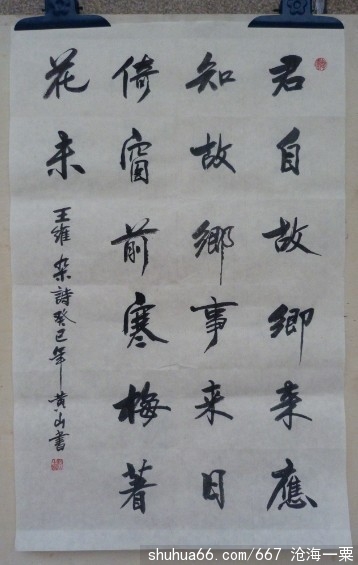 君自故鄉来應
知故鄉事来日
倚窗前寒梅著
花未
王維 雜詩癸巳年黄山書
shuhua66.com/667 沧海一粟